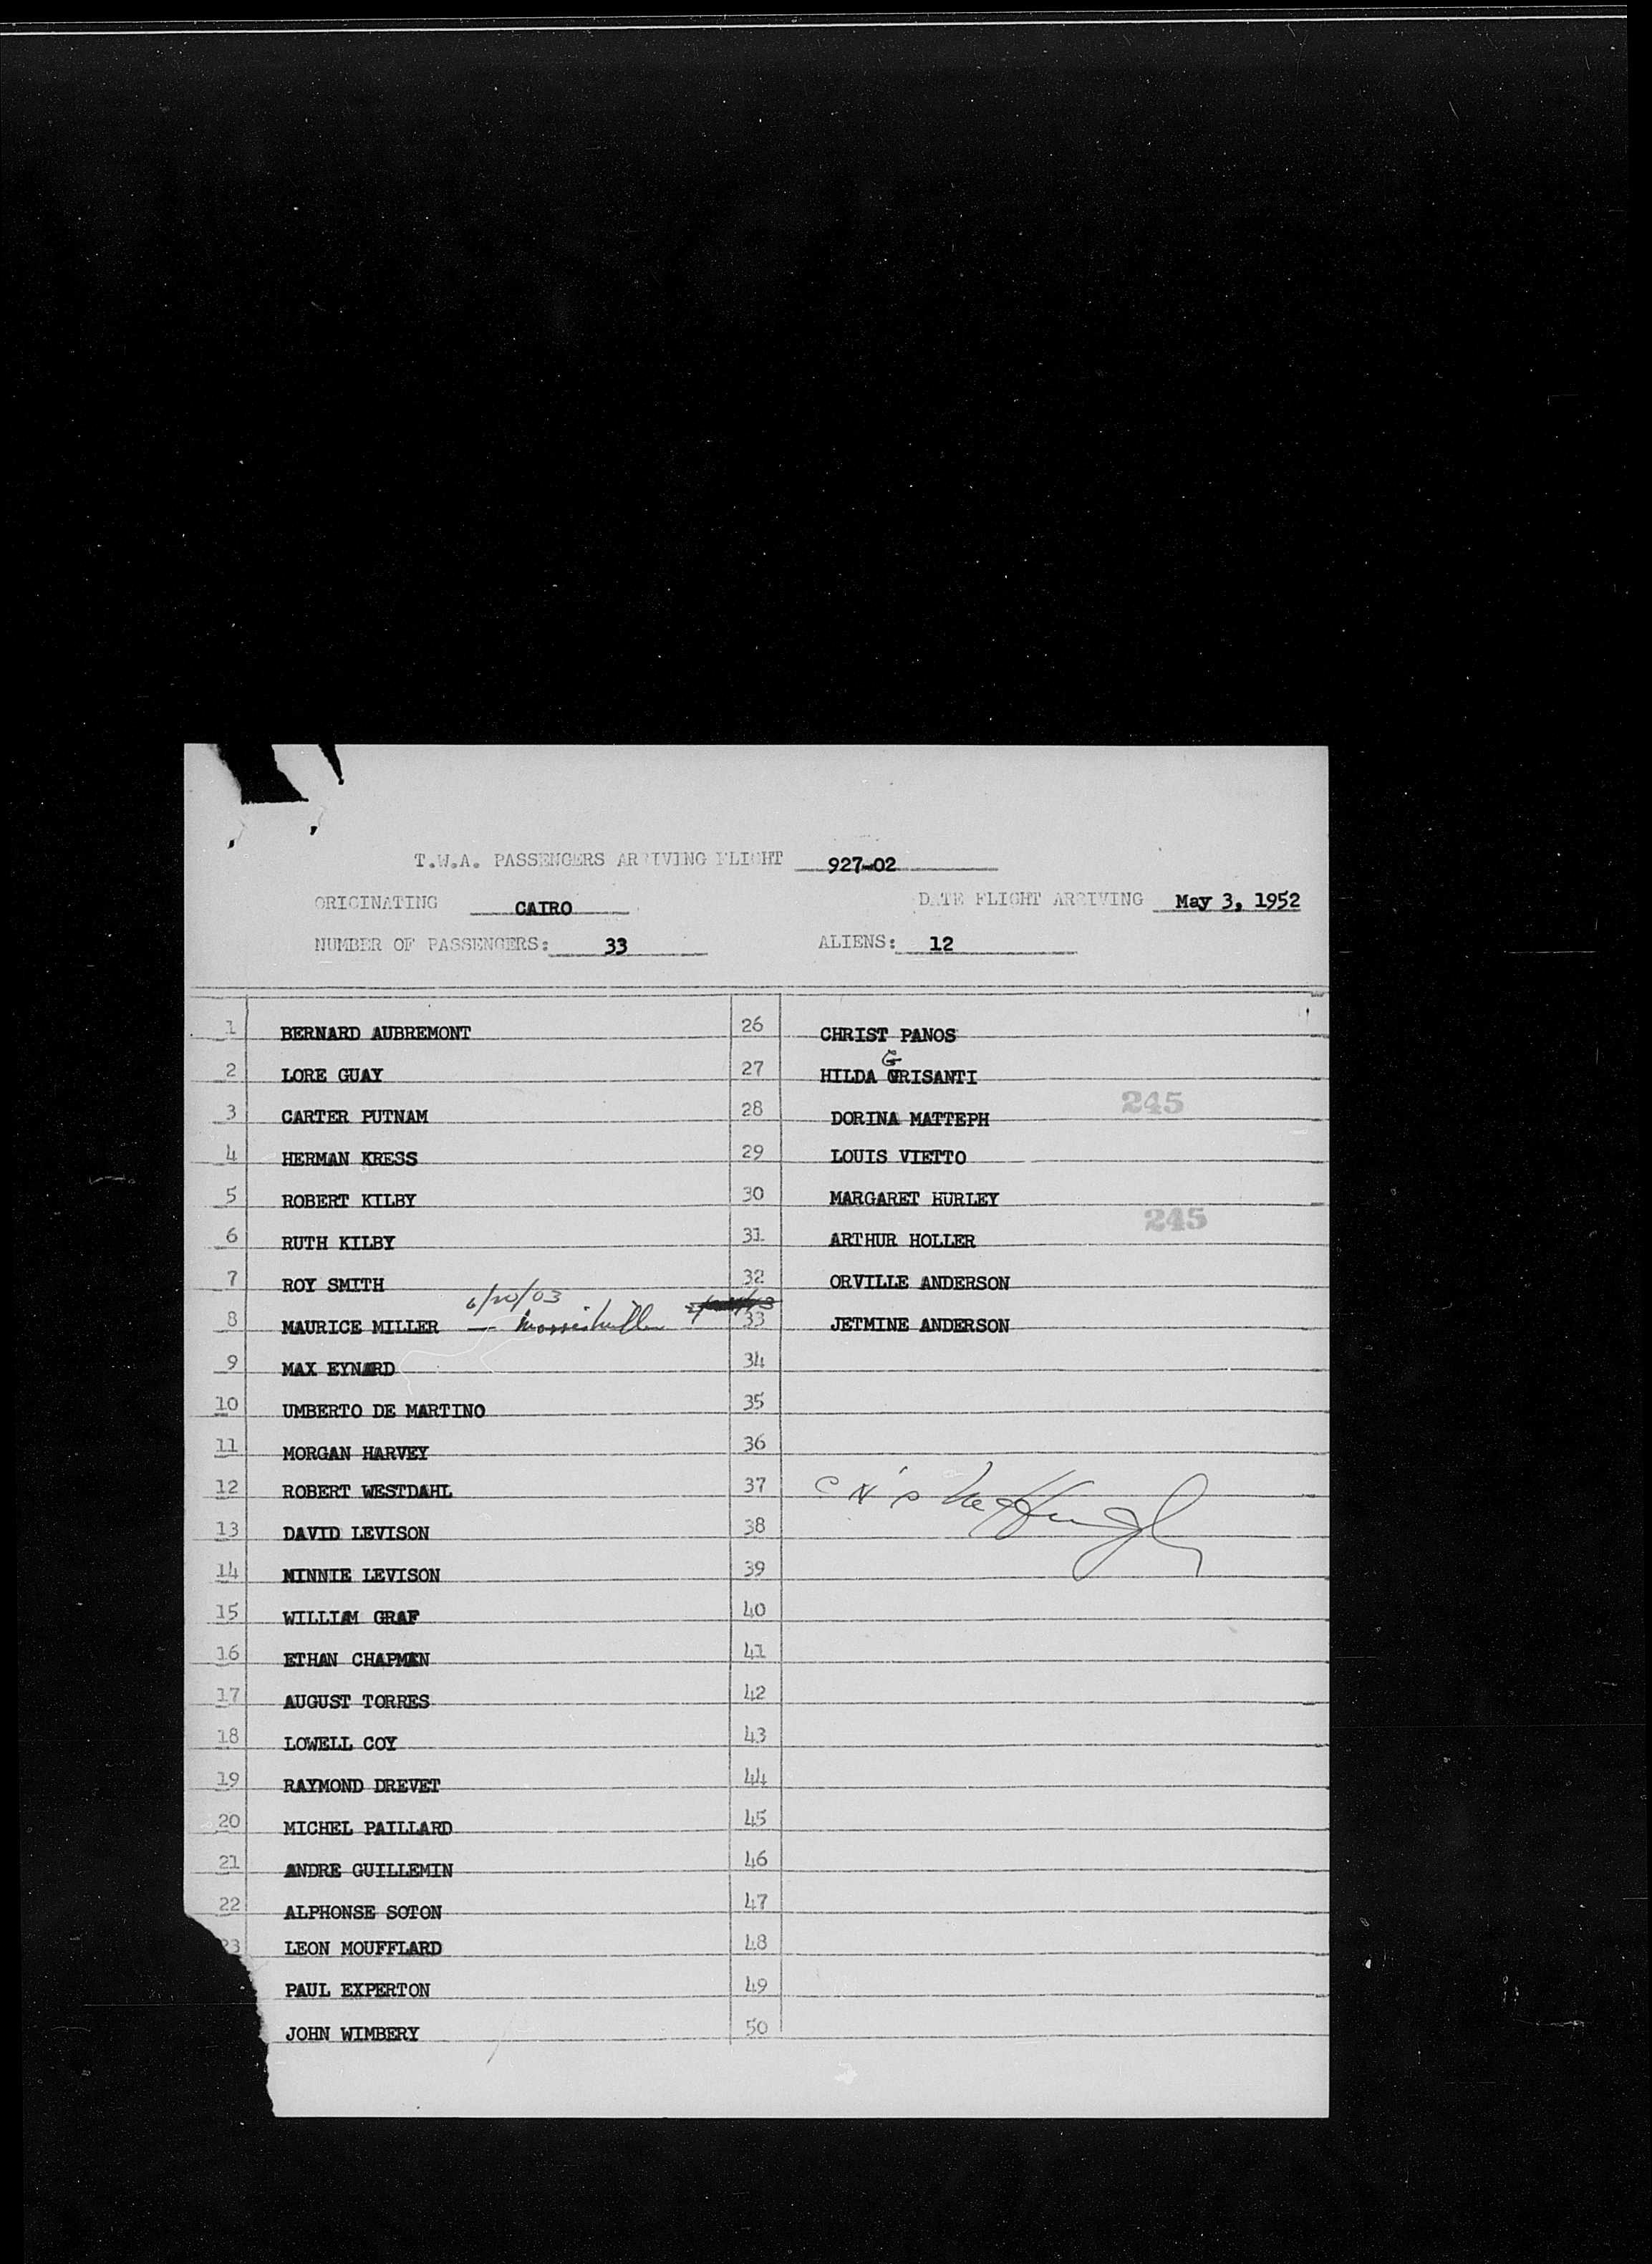 T.W.A. PASSENGERS ARRIVING FLIGHT 927-02
ORIGINATING CAIRO DATE FLIGHT ARRIVING May 3, 1952
NUMBER OF PASSENGERS: 33 ALIENS: 12
1 BERNARD AUBREMONT
2 LORE GUAY
3 CARTER PUTNAM
4 HERMAN KRESS
5 ROBERT KILBY
6 RUTH KILBY
7 ROY SMITH
6/20/03
8 MAURICE MILLER —
9 MAX EYNARD
10 UMBERTO DE MARTINO
11 MORGAN HARVEY
12 ROBERT WESTDAHL
13 DAVID LEVISON
14 MINNIE LEVISON
15 WILLIAM GRAF
16 ETHAN CHAPMAN
17 AUGUST TORRES
18 LOWELL COY
19 RAYMOND DREVET
20 MICHEL PAILLARD
21 ANDRE GUILLEMIN
22 ALPHONSE SOTON
23 LEON MOUFFLARD
PAUL EXPERTON
JOHN WIMBERY
26 CHRIST PANOS
G
27 HILDA GRISANTI
245
28 DORINA MATTEPH
29 LOUIS VIETTO
30 MARGARET HURLEY
245
31 ARTHUR HOLLER
32 ORVILLE ANDERSON
33 JETMINE ANDERSON
34
35
36
37
38
39
40
41
42
43
44
45
46
47
48
49
50